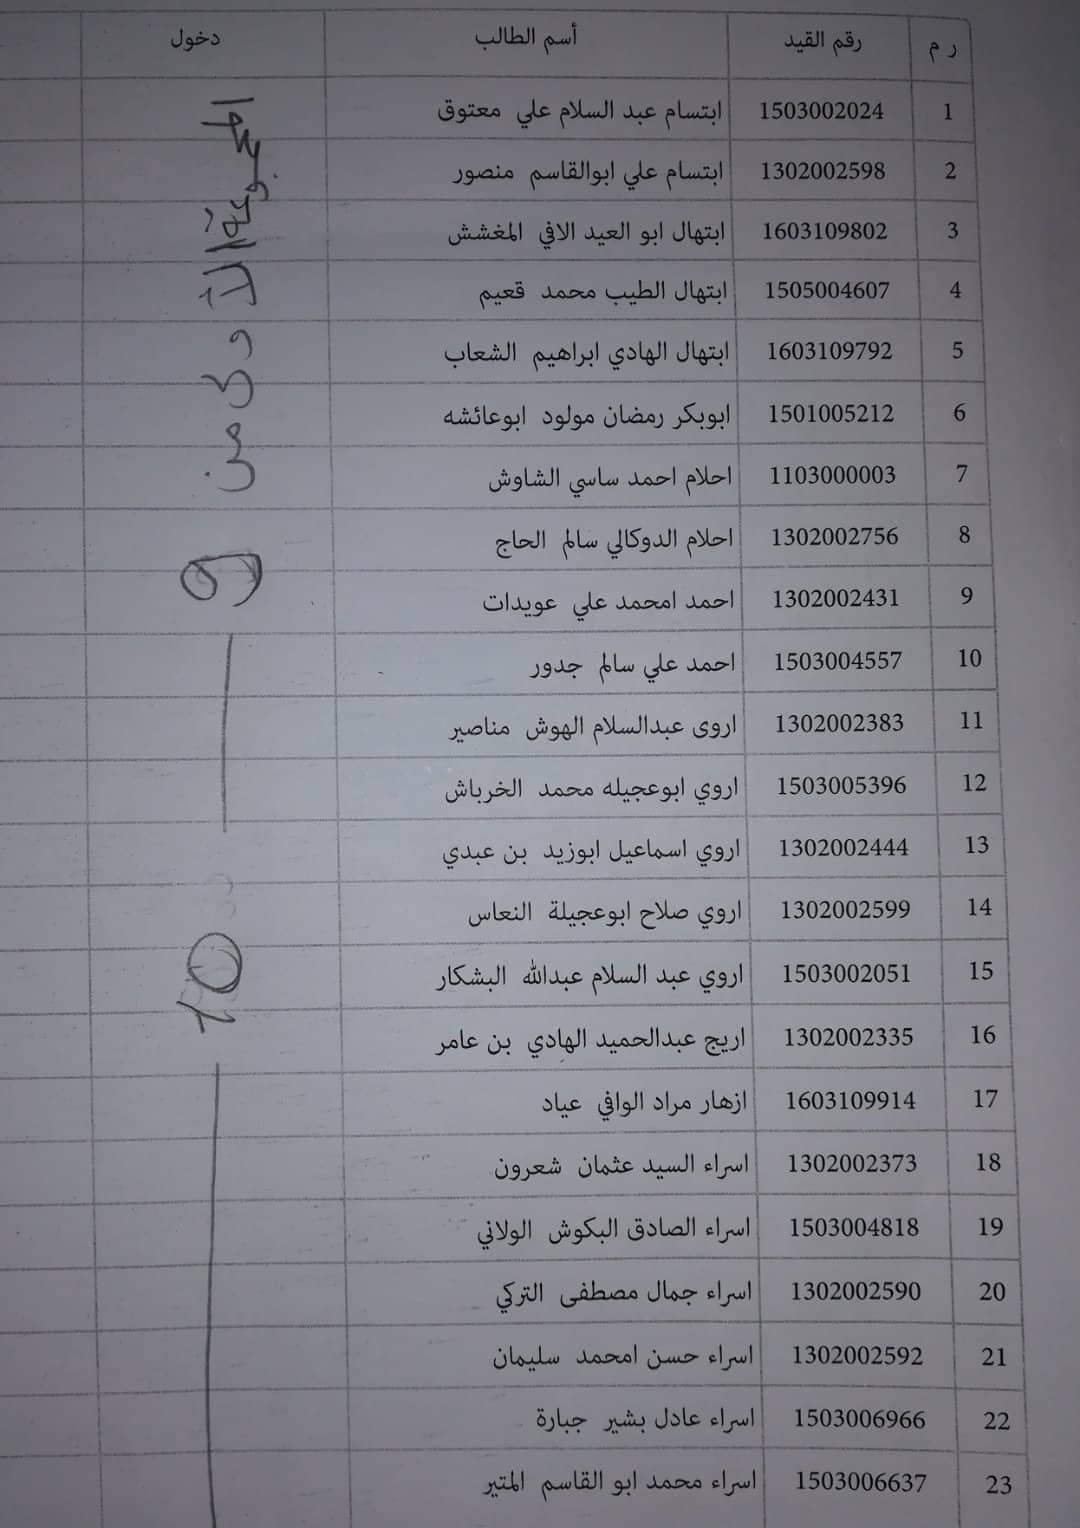 ر م رقم القيد أسم الطالب دخول
1 1503002024 ابتسام عبد السلام علي معتوق
2 1302002598 ابتسام علي ابوالقاسم منصور
3 1603109802 ابتهال ابو العيد الافي المغشش
4 1505004607 ابتهال الطيب محمد قعيم
5 1603109792 ابتهال الهادي ابراهيم الشعاب
6 1501005212 ابوبكر رمضان مولود ابوعائشه
7 1103000003 احلام احمد ساسي الشاوش
8 1302002756 احلام الدوكالي سالم الحاج
9 1302002431 احمد امحمد علي عويدات
10 1503004557 احمد علي سالم جدور
11 1302002383 اروى عبدالسلام الهوش مناصير
12 1503005396 اروي ابوعجيله محمد الخرباش
13 1302002444 اروي اسماعيل ابوزيد بن عبدي
14 1302002599 اروي صلاح ابوعجيلة النعاس
15 1503002051 اروي عبد السلام عبدالله البشكار
16 1302002335 اريج عبدالحميد الهادي بن عامر
17 1603109914 ازهار مراد الوافي عياد
18 1302002373 اسراء السيد عثمان شعرون
19 1503004818 اسراء الصادق البكوش الولاني
20 1302002590 اسراء جمال مصطفى التركي
21 1302002592 اسراء حسن امحمد سليمان
22 1503006966 اسراء عادل بشير جبارة
23 1503006637 اسراء محمد ابو القاسم المتير
المجموعة الأولى من 9 10